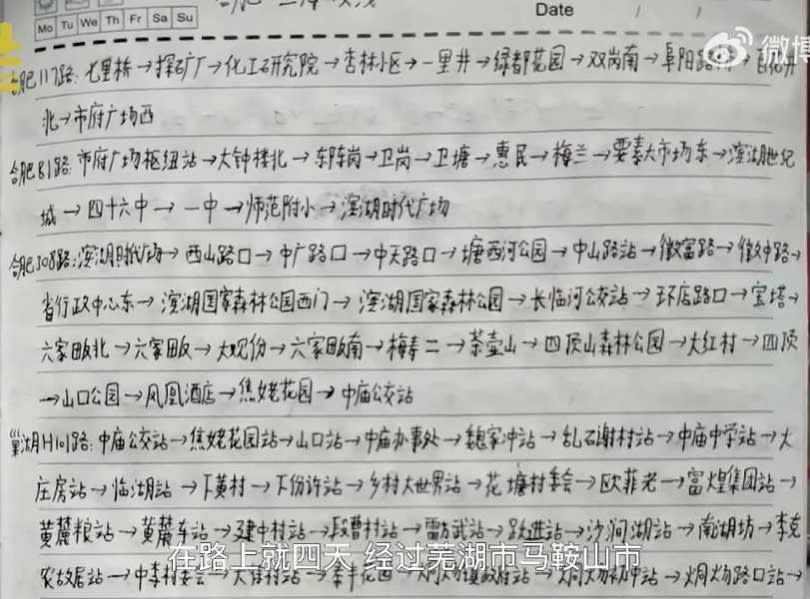 Date / /
Mo Tu We Th Fr Sa Su
微博
合肥117路:七里桥→探矿厂→化工研究院→杏林小区→一里井→绿都花园→双岗南→阜阳路
北→市府广场西
合肥B1路:市府广场枢纽站→大钟楼北→东陈岗→卫岗→卫塘→惠民→梅兰→要素大市场东→滨湖世纪
城→四十六中→一中→师范附小→滨湖时代广场
合肥308路:滨湖时代广场→西山路口→中广路口→中天路口→塘西河公园→中山路站→徽富路→徽中路→
省行政中心东→滨湖国家森林公园西门→滨湖国家森林公园→长临河公交站→环店路口→宝塔→
六家畈北→六家畈→大观份→六家畈南→梅寿二→茶壶山→四顶山森林公园→大红村→四顶
→山口公园→凤凰酒店→焦姥花园→中庙公交站
巢湖H101路:中庙公交站→焦姥花园站→山口站→中庙办事处→魏家冲站→乱石谢村站→中庙中学站→大
庄房站→临湖站→下黄村→下份许站→乡村大世界站→花塘村委会→欧菲老→富煌集团站→
黄麓粮站→黄麓车站→建中村站→段曹村站→雷方武站→跃进站→沙涧湖站→南湖坊→李克
农故居站→中李村委会→
在路上就四天 经过芜湖市马鞍山市